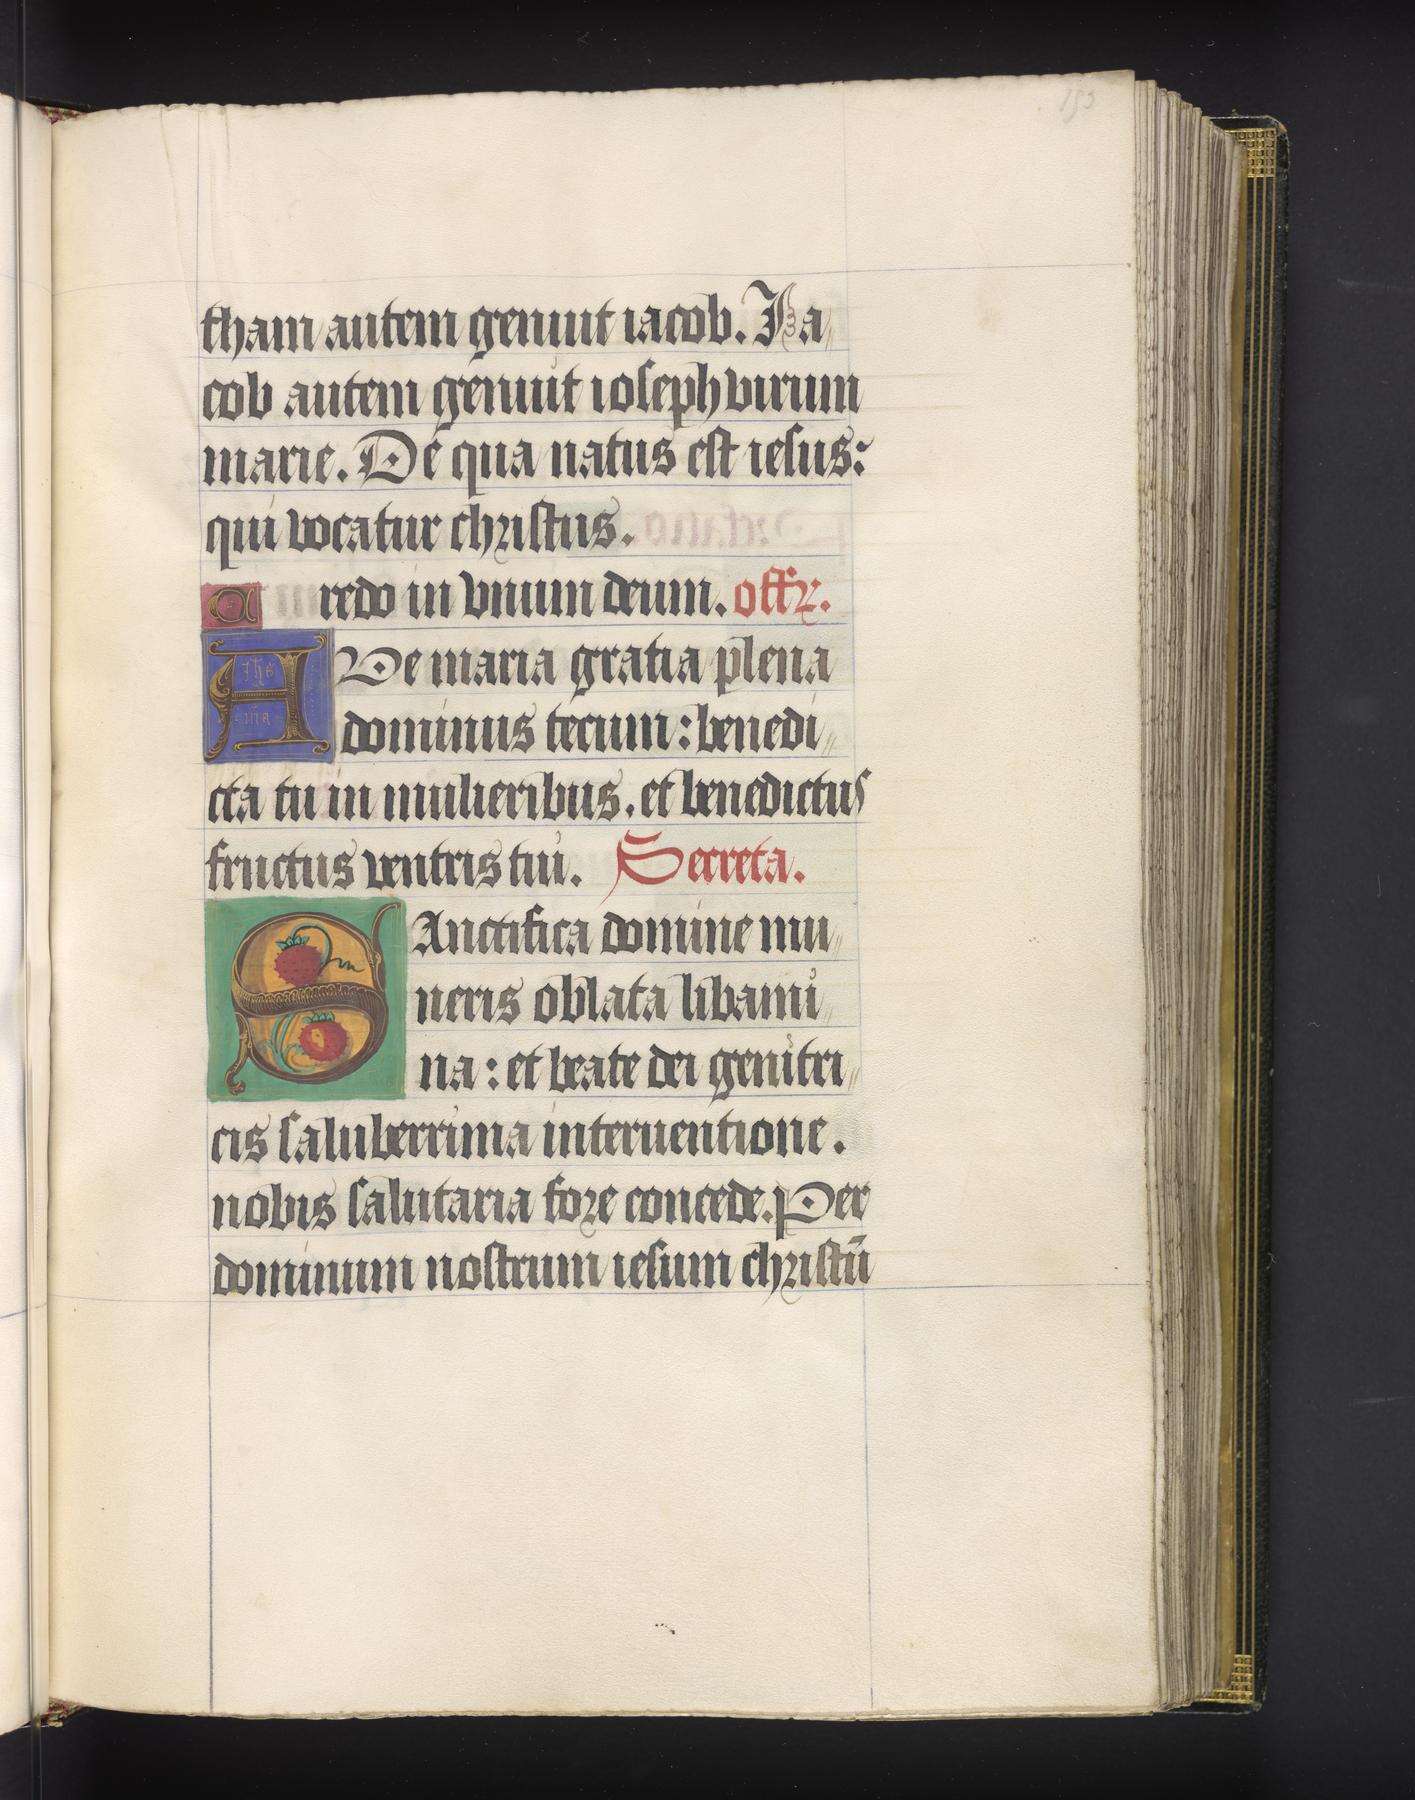 153
tham autem genuit iacob. Ia
cob autem genuit ioseph virum
marie. De qua natus est iesus:
qui vocatur christus.
Credo in vnum deum. offr.
AVe maria gratia plena
dominus tecum: benedi
cta tu in mulieribus. et benedictus
fructus ventris tui. Secreta.
SAnctifica domine mu
neris oblata libami
na: et beate dei genitri
cis saluberrima interuentione.
nobis salutaria fore concede. Per
dominum nostrum iesum christū